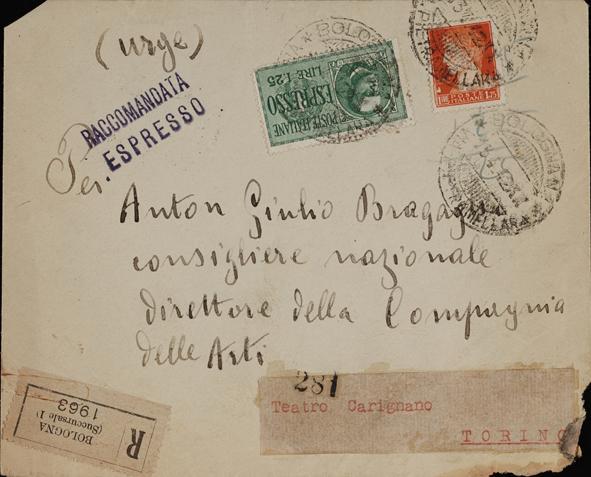 (urge)
RACCOMANDATA
ESPRESSO
POSTE ITALIANE
ESPRESSO
LIRE 1.25
POSTE
ITALIANE
1.75
BOLOGNA
Per.
Anton Giulio Bragag
consigliere nazionale
direttore della Compagnia
delle Arti
R
BOLOGNA
(Succursale 1)
1963
281
Teatro Carignano
TORINO